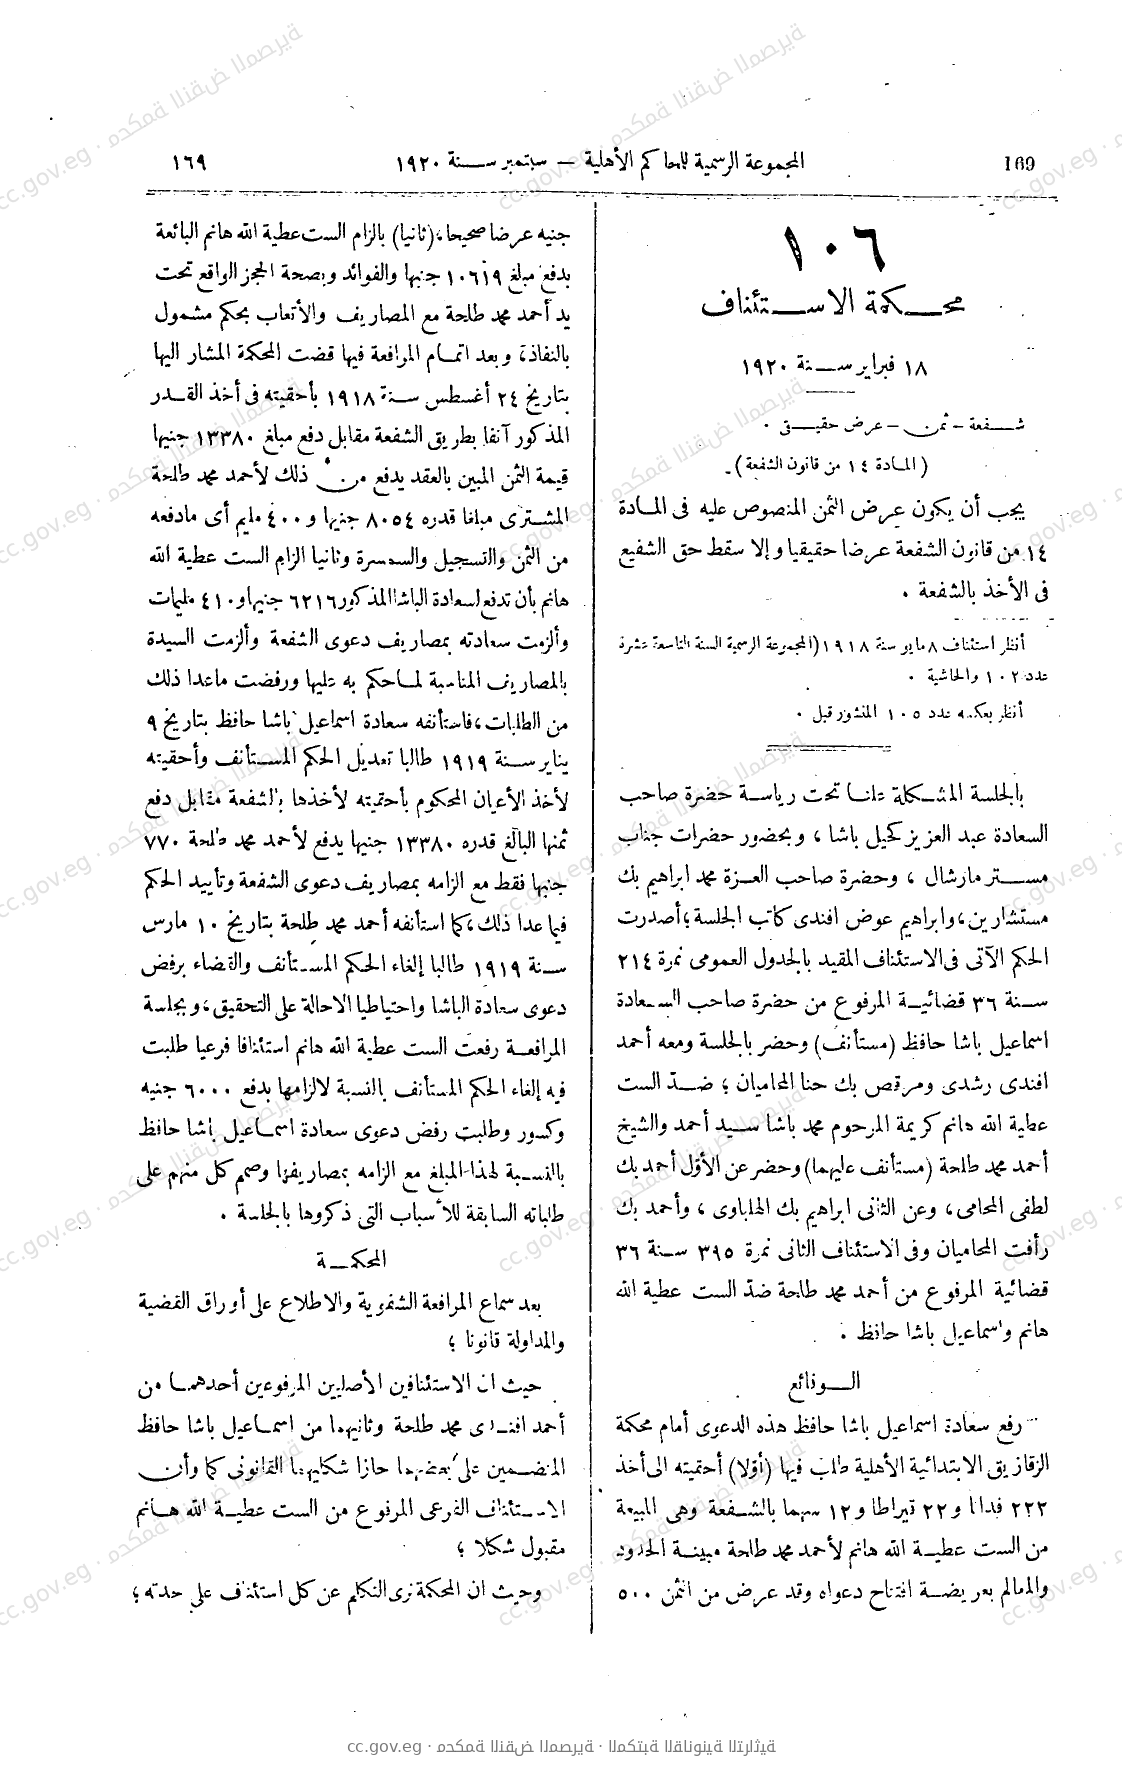 169
المجموعة الرسمية للمحاكم الأهلية — سبتمبر سنة ١٩٢٠
١٦٩
١٠٦
محكمة الاستئناف
١٨ فبراير سنة ١٩٢٠
شفعة - ثمن - عرض حقيقى .
( المادة ١٤ من قانون الشفعة ) .
يجب أن يكون عرض الثمن المنصوص عليه فى المادة
١٤ من قانون الشفعة عرضا حقيقيا وإلا سقط حق الشفيع
فى الأخذ بالشفعة .
أنظر استئناف ٨ مايو سنة ١٩١٨ (المجموعة الرسمية السنة التاسعة عشرة
عدد ١٠٢ والحاشية .
أنظر بعكسه عدد ١٠٥ المنشور قبل .
بالجلسة المشكلة علنا تحت رياسة حضرة صاحب
السعادة عبد العزيز كحيل باشا ، وبحضور حضرات جناب
مستر مارشال ، وحضرة صاحب العزة محمد ابراهيم بك
مستشارين، وابراهيم عوض افندى كاتب الجلسة ؛ أصدرت
الحكم الآتى فى الاستئناف المقيد بالجدول العمومى نمرة ٢١٤
سنة ٣٦ قضائية المرفوع من حضرة صاحب السعادة
اسماعيل باشا حافظ (مستأنف) وحضر بالجلسة ومعه أحمد
افندى رشدى ومرقص بك حنا المحاميان ؛ ضد الست
عطية الله هانم كريمة المرحوم محمد باشا سيد أحمد والشيخ
أحمد محمد طلحة (مستأنف عليهما) وحضر عن الأول أحمد بك
لطفى المحامى ، وعن الثانى ابراهيم بك الهلباوى ، وأحمد بك
رأفت المحاميان وفى الاستئناف الثانى نمرة ٣٩٥ سنة ٣٦
قضائية المرفوع من أحمد محمد طلحة ضد الست عطية الله
هانم واسماعيل باشا حافظ .
الوقائع
رفع سعادة اسماعيل باشا حافظ هذه الدعوى أمام محكمة
الزقازيق الابتدائية الأهلية طلب فيها (أولا) أحقيته الى أخذ
٢٢٢ فدانا و ٢٢ قيراطا و ١٢ سهما بالشفعة وهى المبيعة
من الست عطية الله هانم لأحمد محمد طلحة مبينة الحدود
والمعالم بعريضة افتتاح دعواه وقد عرض من الثمن ٥٠٠
جنيه عرضا صحيحا، (ثانيا) بالزام الست عطية الله هانم البائعة
بدفع مبلغ ١٠٦١٩ جنيها والفوائد وبصحة الحجز الواقع تحت
يد أحمد محمد طلحة مع المصاريف والأتعاب بحكم مشمول
بالنفاذ، وبعد اتمام المرافعة فيها قضت المحكمة المشار اليها
بتاريخ ٢٤ أغسطس سنة ١٩١٨ بأحقيته فى أخذ القدر
المذكور آنفا بطريق الشفعة مقابل دفع مبلغ ١٣٣٨٠ جنيها
قيمة الثمن المبين بالعقد يدفع من ذلك لأحمد محمد طلحة
المشترى مبلغا قدره ٨٠٥٤ جنيها و ٤٠٠ مليم أى مادفعه
من الثمن والتسجيل والسمسرة وثانيا الزام الست عطية الله
هانم بأن تدفع لسعادة الباشا المذكور ٦٢١٦ جنيها و ٤١٠ مليمات
وألزمت سعادته بمصاريف دعوى الشفعة وألزمت السيدة
بالمصاريف المناسبة لما حكم به عليها ورفضت ماعدا ذلك
من الطلبات، فاستأنفه سعادة اسماعيل باشا حافظ بتاريخ ٩
يناير سنة ١٩١٩ طالبا تعديل الحكم المستأنف وأحقيته
لأخذ الأعيان المحكوم بأحقيته لأخذها بالشفعة مقابل دفع
ثمنها البالغ قدره ١٣٣٨٠ جنيها يدفع لأحمد محمد طلحة ٧٧٠
جنيها فقط مع الزامه بمصاريف دعوى الشفعة وتأييد الحكم
فيما عدا ذلك، كما استأنفه أحمد محمد طلحة بتاريخ ١٠ مارس
سنة ١٩١٩ طالبا إلغاء الحكم المستأنف والقضاء برفض
دعوى سعادة الباشا واحتياطيا الاحالة على التحقيق، وبجلسة
المرافعة رفعت الست عطية الله هانم استئنافا فرعيا طلبت
فيه إلغاء الحكم المستأنف بالنسبة لالزامها بدفع ٦٠٠٠ جنيه
وكسور وطلبت رفض دعوى سعادة اسماعيل باشا حافظ
بالنسبة لهذا المبلغ مع الزامه بمصاريفها وصمم كل منهم على
طلباته السابقة للأسباب التى ذكروها بالجلسة .
المحكمة
بعد سماع المرافعة الشفوية والاطلاع على أوراق القضية
والمداولة قانونا ؛
حيث ان الاستئنافين الأصليين المرفوعين أحدهما من
أحمد افندى محمد طلحة وثانيهما من اسماعيل باشا حافظ
المنضمين على بعضهما حازا شكليهما القانونى كما وأن
الاستئناف الفرعى المرفوع من الست عطية الله هانم
مقبول شكلا ؛
وحيث ان المحكمة ترى التكلم عن كل استئناف على حدته ؛
cc.gov.eg · محكمة النقض المصرية · المكتبة القانونية التراثية